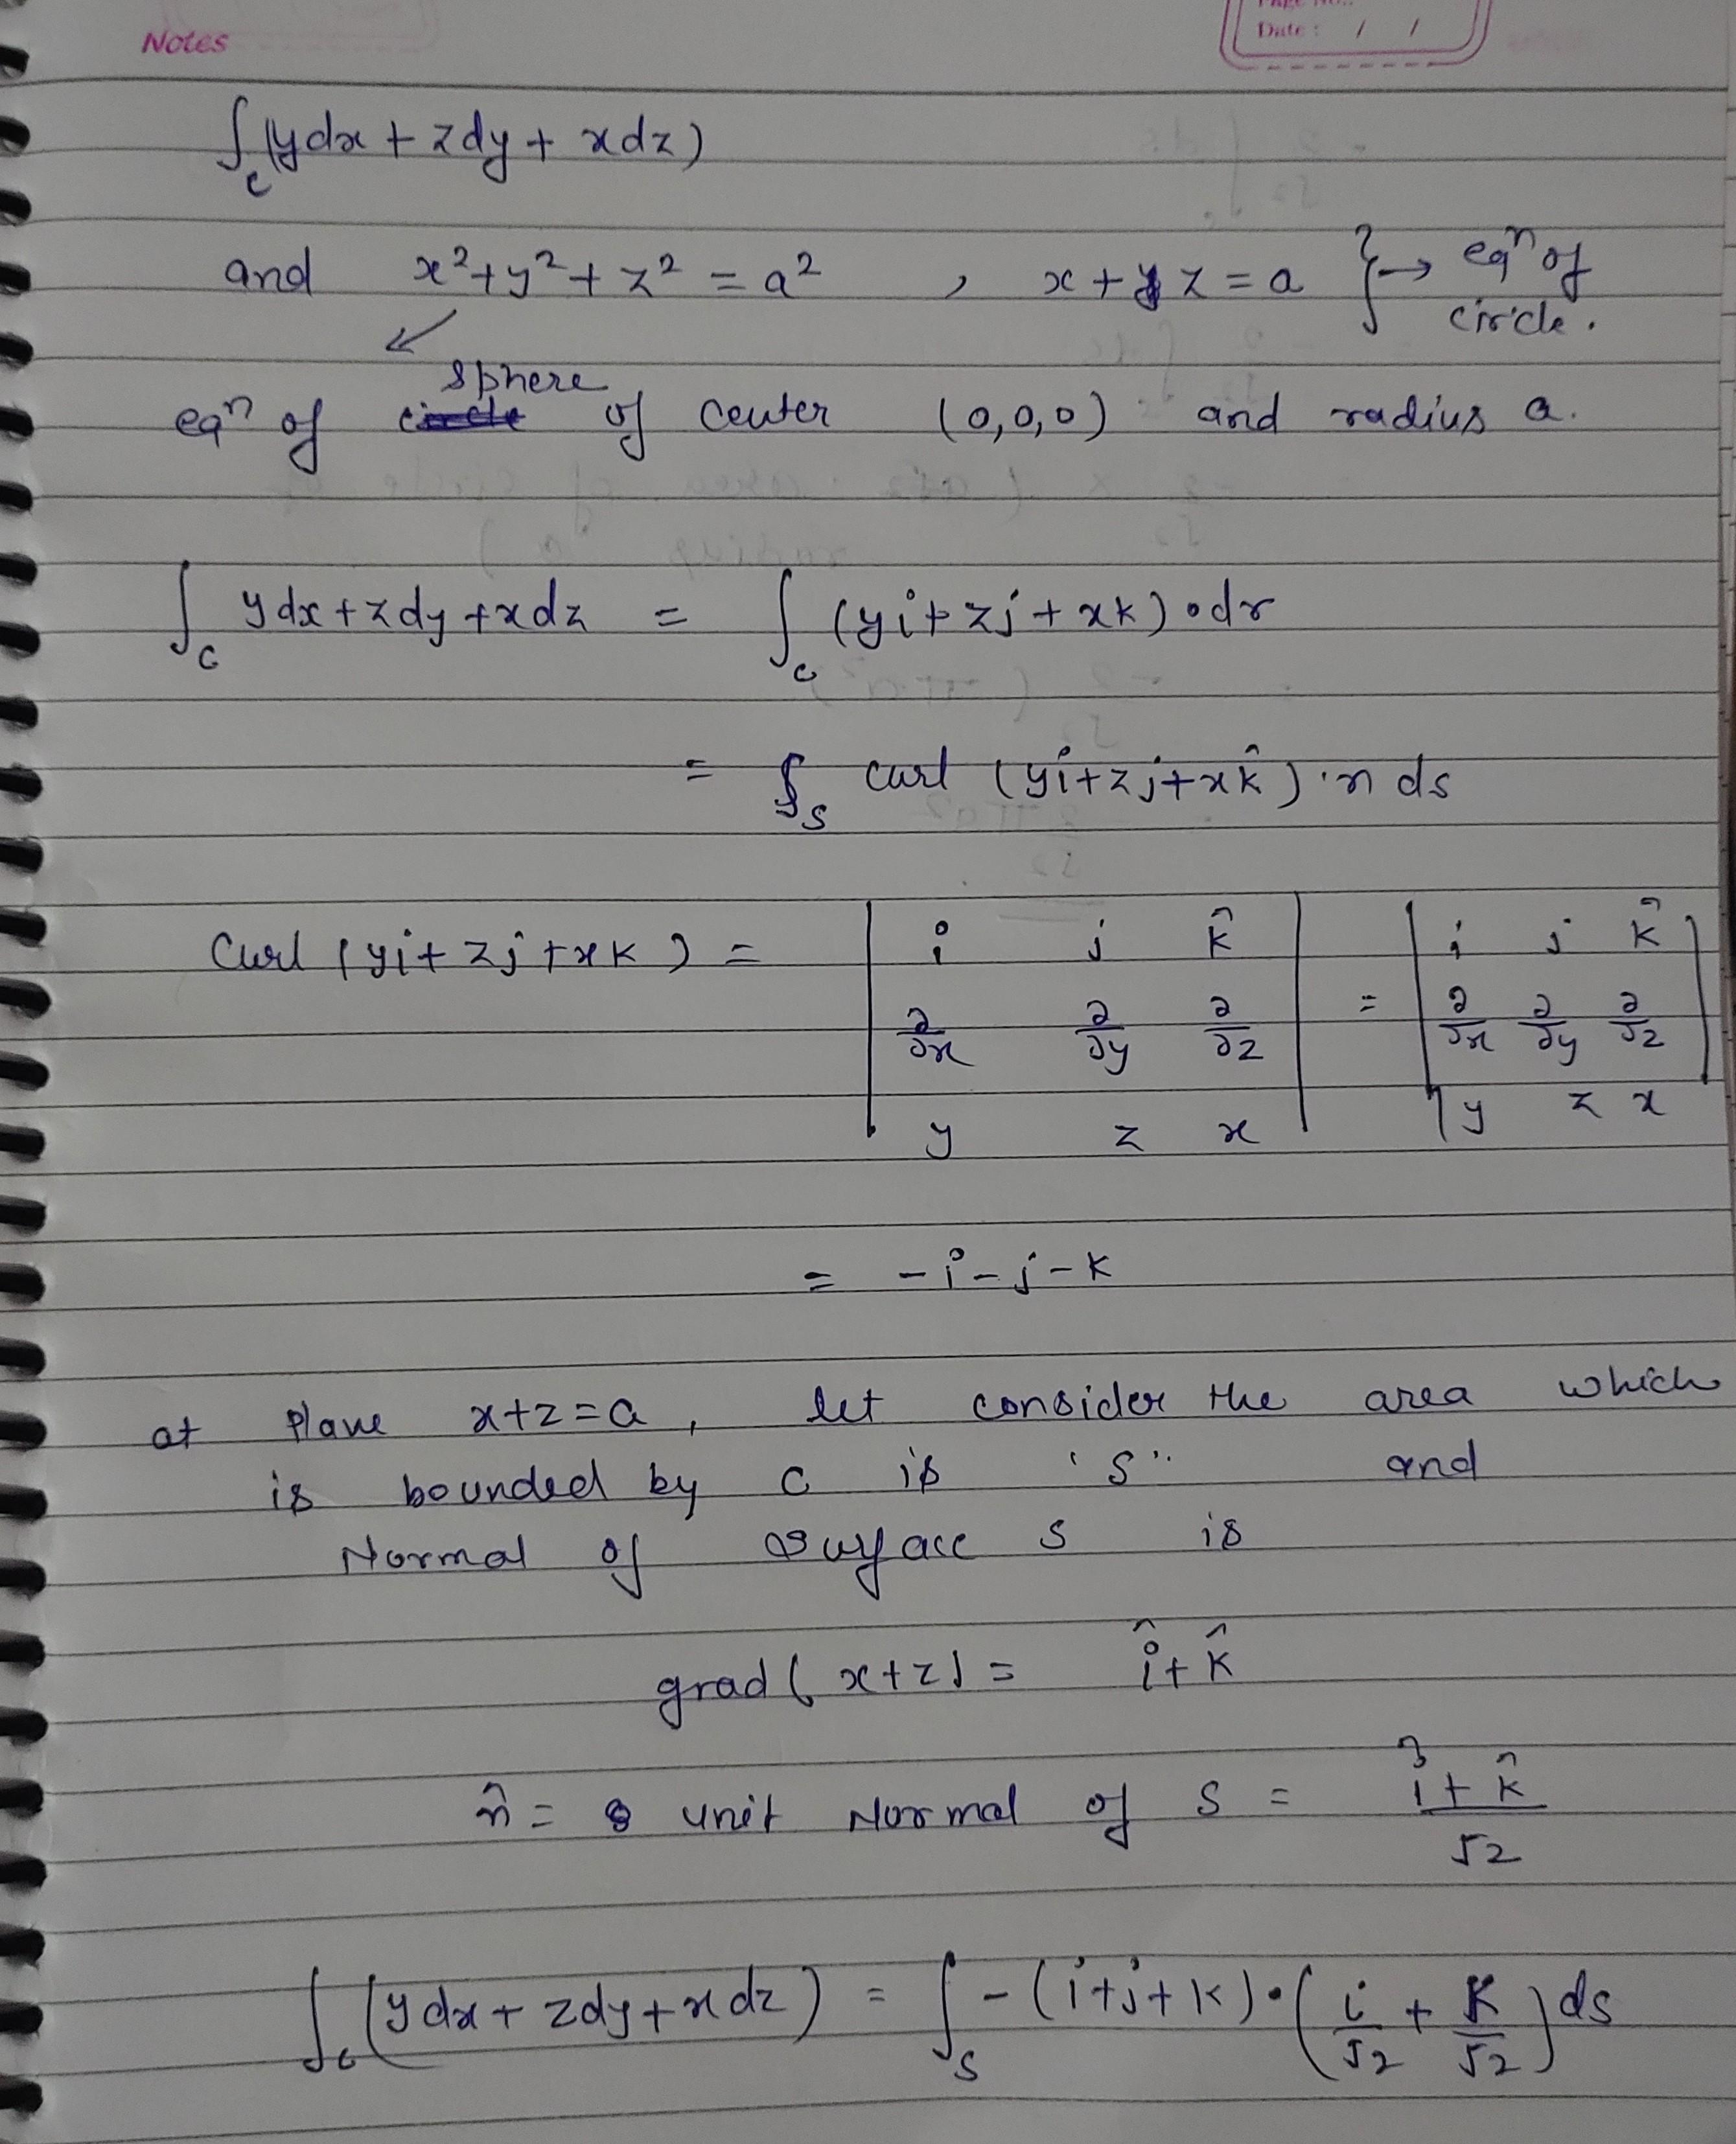 Notes
Page No.
Date : / /
∫c (ydx + zdy + xdz)
and x²+y²+z² = a² , x + z = a } → eqⁿ of circle.
sphere
eqⁿ of circle of center (0,0,0) and radius a.
∫c ydx+zdy+xdz = ∫c (yi+zj+xk)•dr
= ∮s curl (yi+zj+xk̂)·n ds
Curl (yi+zj+xk) = | i j k̂ | = | i j k̂ |
∂/∂x ∂/∂y ∂/∂z ∂/∂x ∂/∂y ∂/∂z
y z x y z x
= -i-j-k
at plane x+z=a, let consider the area which
is bounded by C is 'S'. and
Normal of surface S is
grad(x+z) = î+k̂
n̂ = unit Normal of S = î+k̂/√2
∫c (ydx+zdy+xdz) = ∫s -(i+j+k)•(i/√2 + k/√2)ds